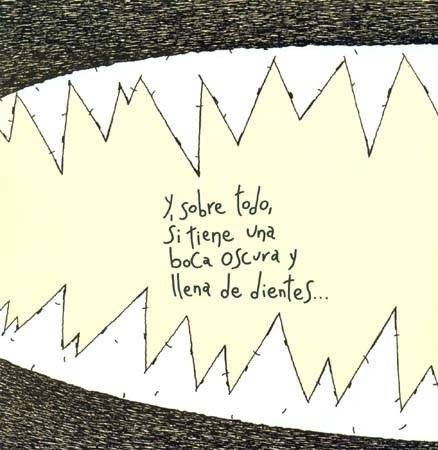 Y, sobre todo,
si tiene una
boca oscura y
llena de dientes...